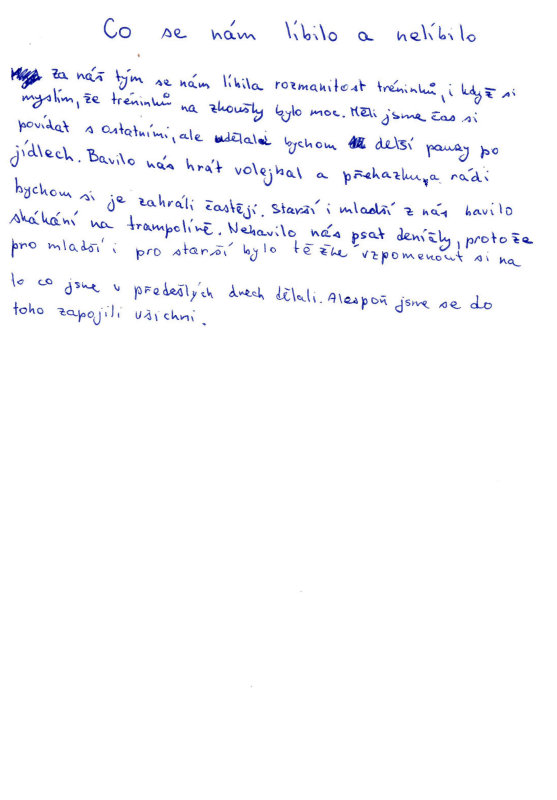 Co se nám líbilo a nelíbilo
Za náš tým se nám líbila rozmanitost tréninků, i když si
myslím, že tréninků na zkoušky bylo moc. Měli jsme čas si
povídat s ostatními, ale udělali bychom delší pauzy po
jídlech. Bavilo nás hrát volejbal a přehazku, a rádi
bychom si je zahráli častějí. Starší i mladší z nás bavilo
skákání na trampolíně. Nebavilo nás psat deníčky, protože
pro mladší i pro starší bylo těžké vzpomenout si na
to co jsme v předešlých dnech dělali. Alespoň jsme se do
toho zapojili všichni.